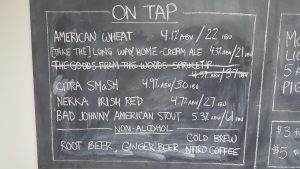 ON TAP
AMERICAN WHEAT 4.1% ABV / 22 IBU
[TAKE THE] LONG WAY HOME - CREAM ALE 4.3% ABV / 21 IBU
THE GOODS FROM THE WOODS
4.9% ABV / 37 IBU
CITRA SMaSH 4.9% ABV / 30 IBU
NERKA IRISH RED 4.7% ABV / 27 IBU
BAD JOHNNY AMERICAN STOUT 5.3% ABV / 61 IBU
NON-ALCOHOL
COLD BREW
ROOT BEER, GINGER BEER, NITRO COFFEE
PI
$3
$5